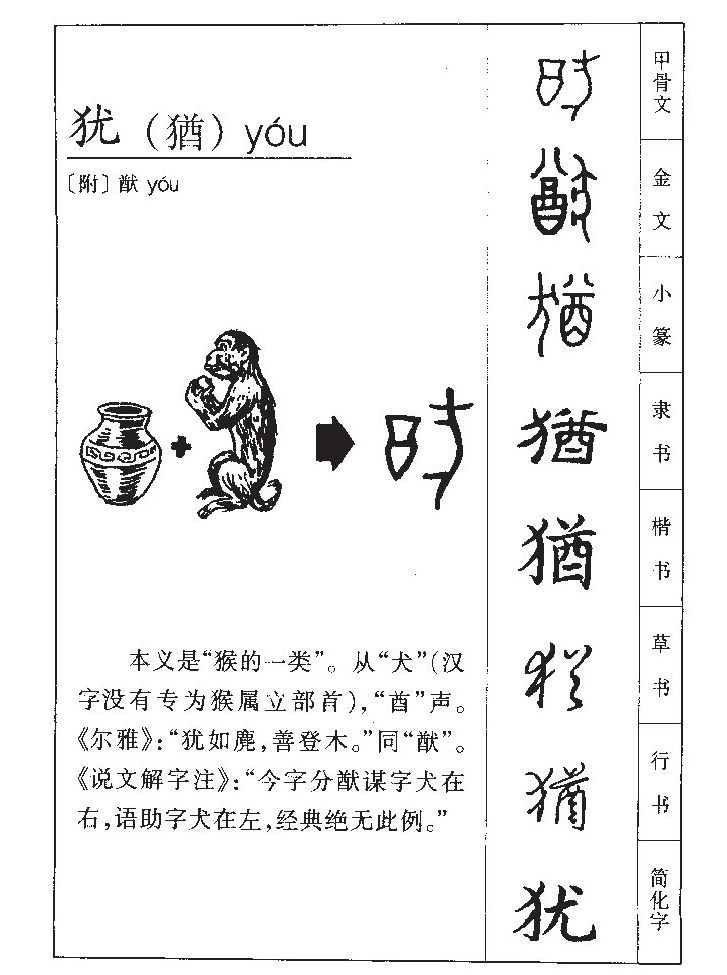 犹（猶）yóu
〔附〕猷 yóu
本义是“猴的一类”。从“犬”（汉
字没有专为猴属立部首），“酋”声。
《尔雅》：“犹如麂，善登木。”同“猷”。
《说文解字注》：“今字分猷谋字犬在
右，语助字犬在左，经典绝无此例。”
猶
猶
猶
犹
甲骨文
金文
小篆
隶书
楷书
草书
行书
简化字